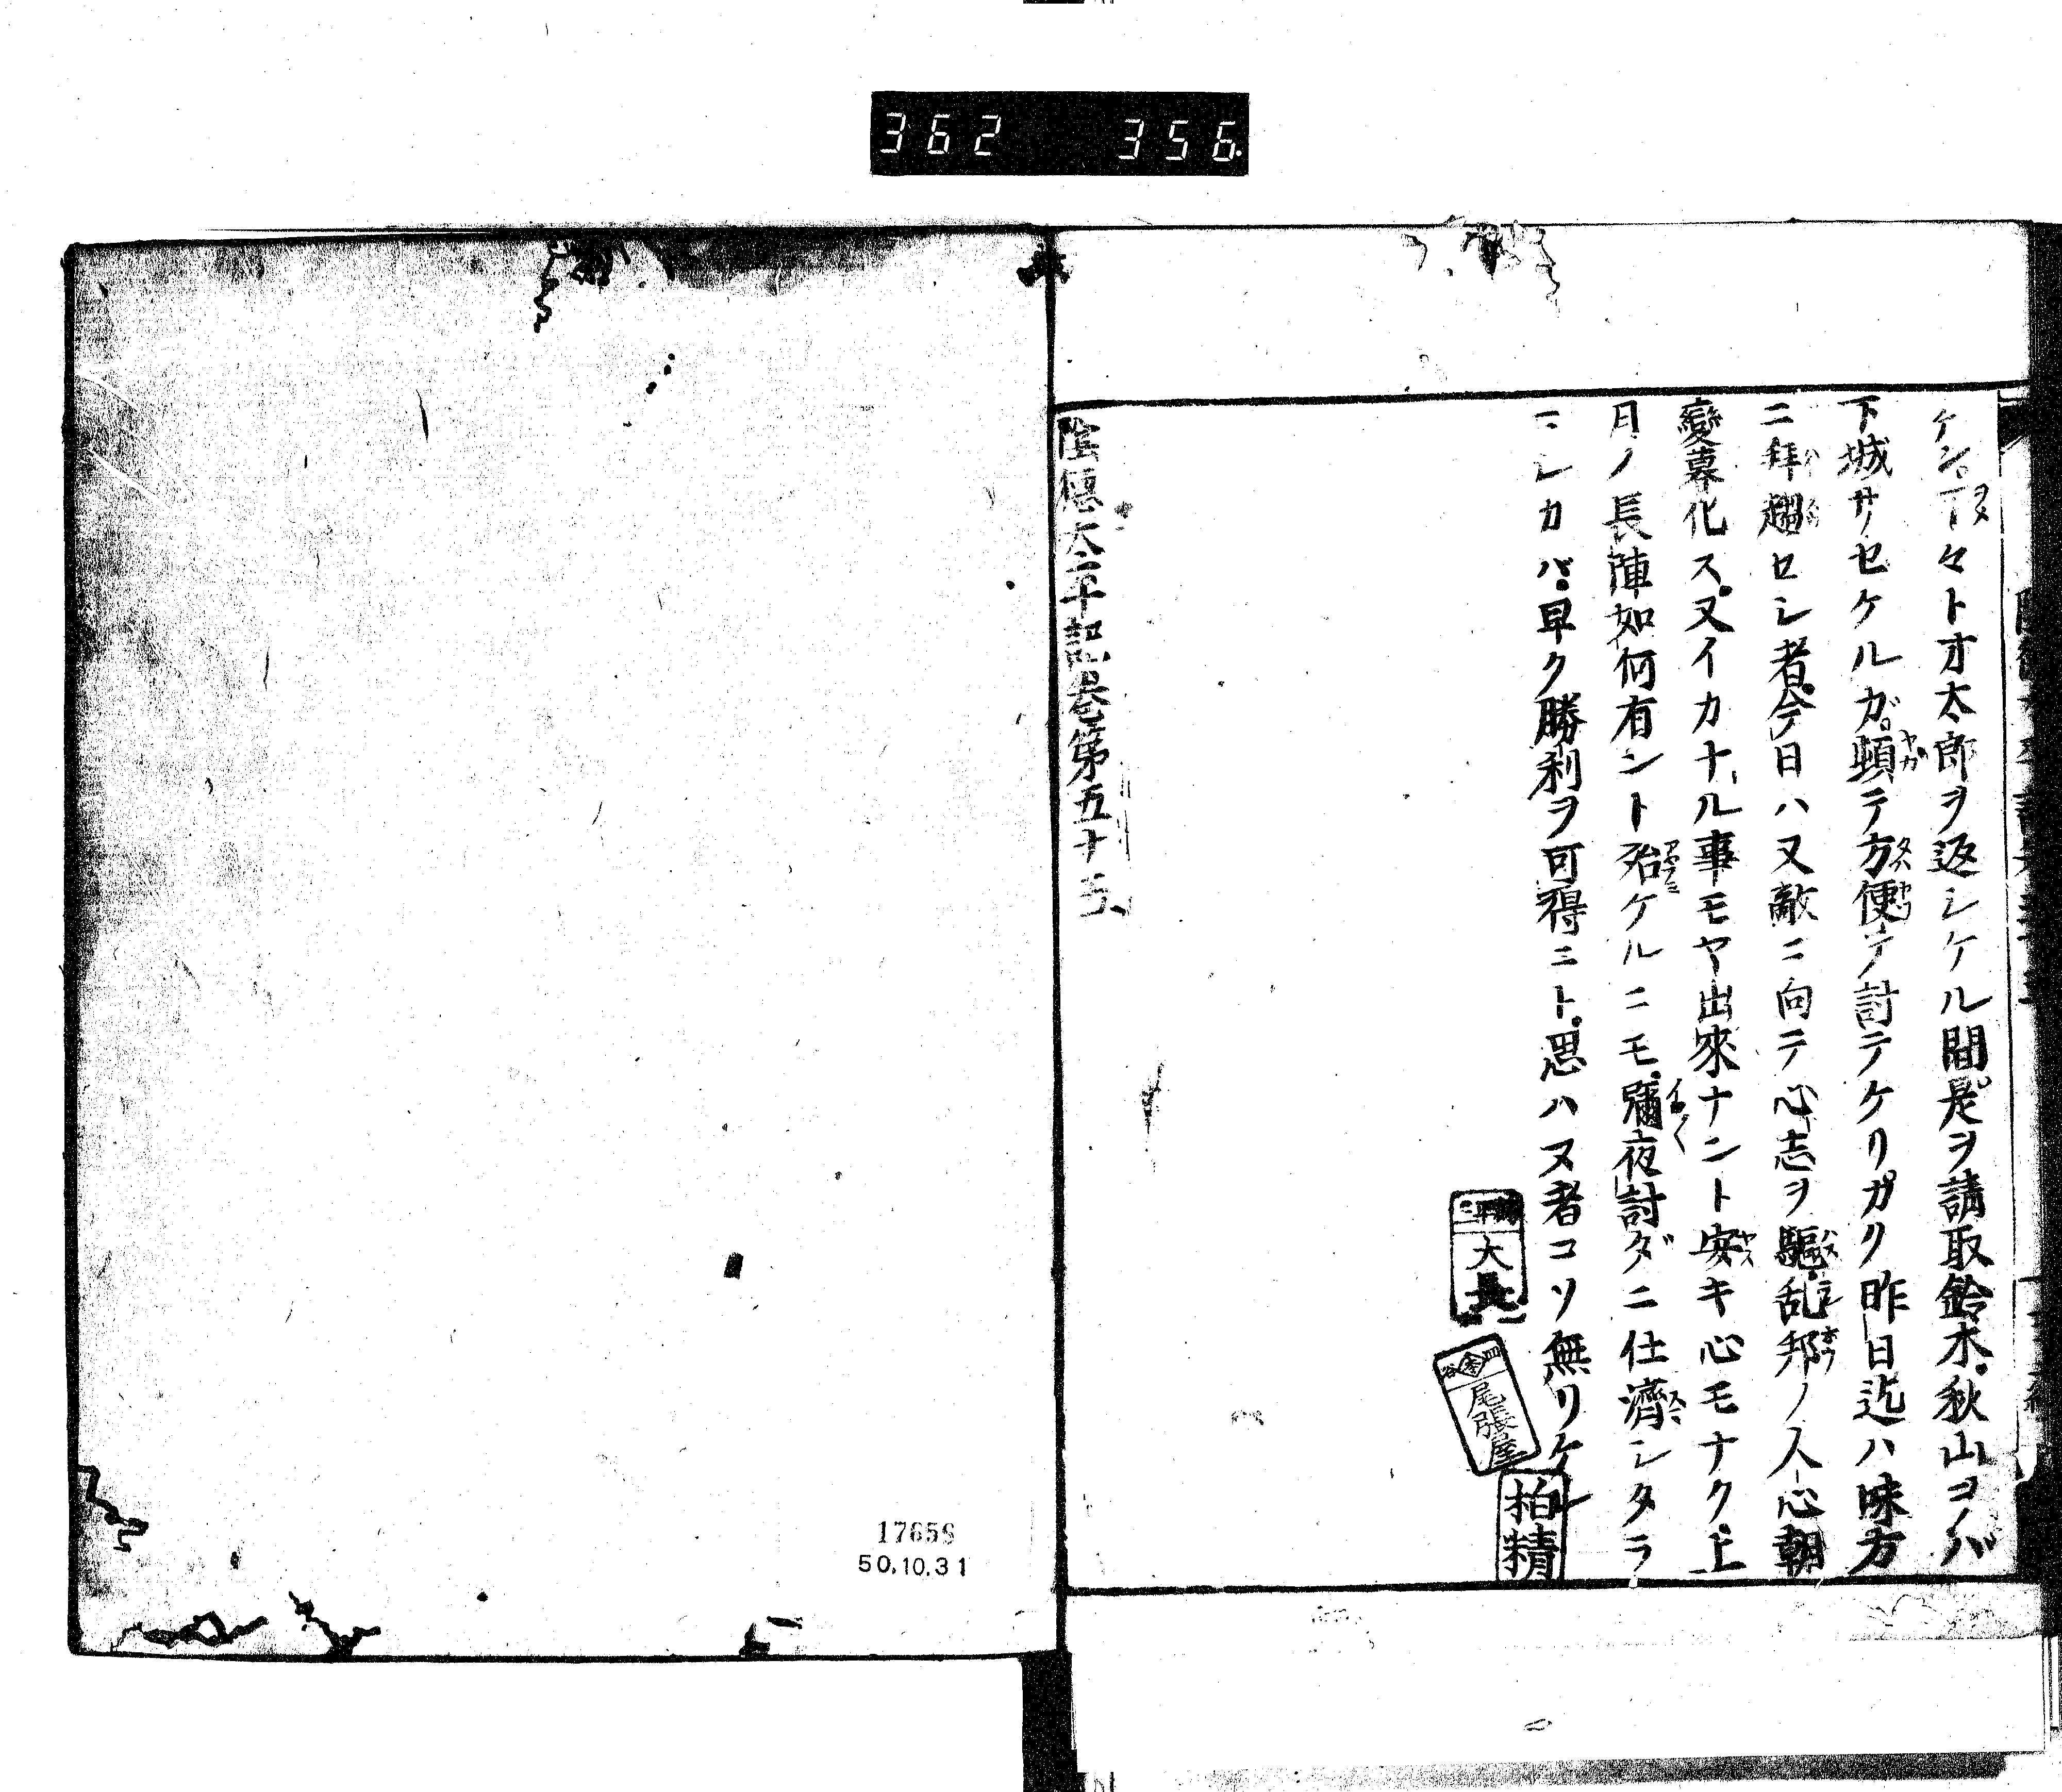 362 356
ケン。丁々トオ太郎ヲ返シケル間。是ヲ請取鈴木。秋山コノバ
下城サセケルガ。頓テ方便テ討テケリ。カク昨日迄ハ味方
ニ拜趨セシ者。今日ハ又敵ニ向テ心志ヲ驅。乱邦ノ人心朝
變暮化ス。又イカナル事モヤ出來ナント安キ心モナク。上
月ノ長陣如何有ント殆ケルニモ。彌夜討ダニ仕濟シタラ
ニシカバ。早ク勝利ヲ可得ニト。思ハヌ者コソ無リケル
大長
四谷
尾張屋
柏精
陰德太平記卷第五十
17659
50.10.31